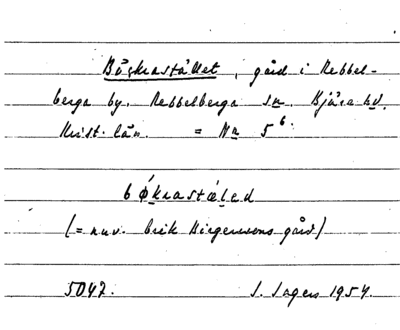 Böskrastället, gård i Rebbel-
berga by. Rebbelberga sn. Bjäre hd.
Krist. län. = Nr 5⁶.
bǿkrastæ̀led
(= nuv. Erik Birgerssons gård)
5047. S. Sagers 1954.